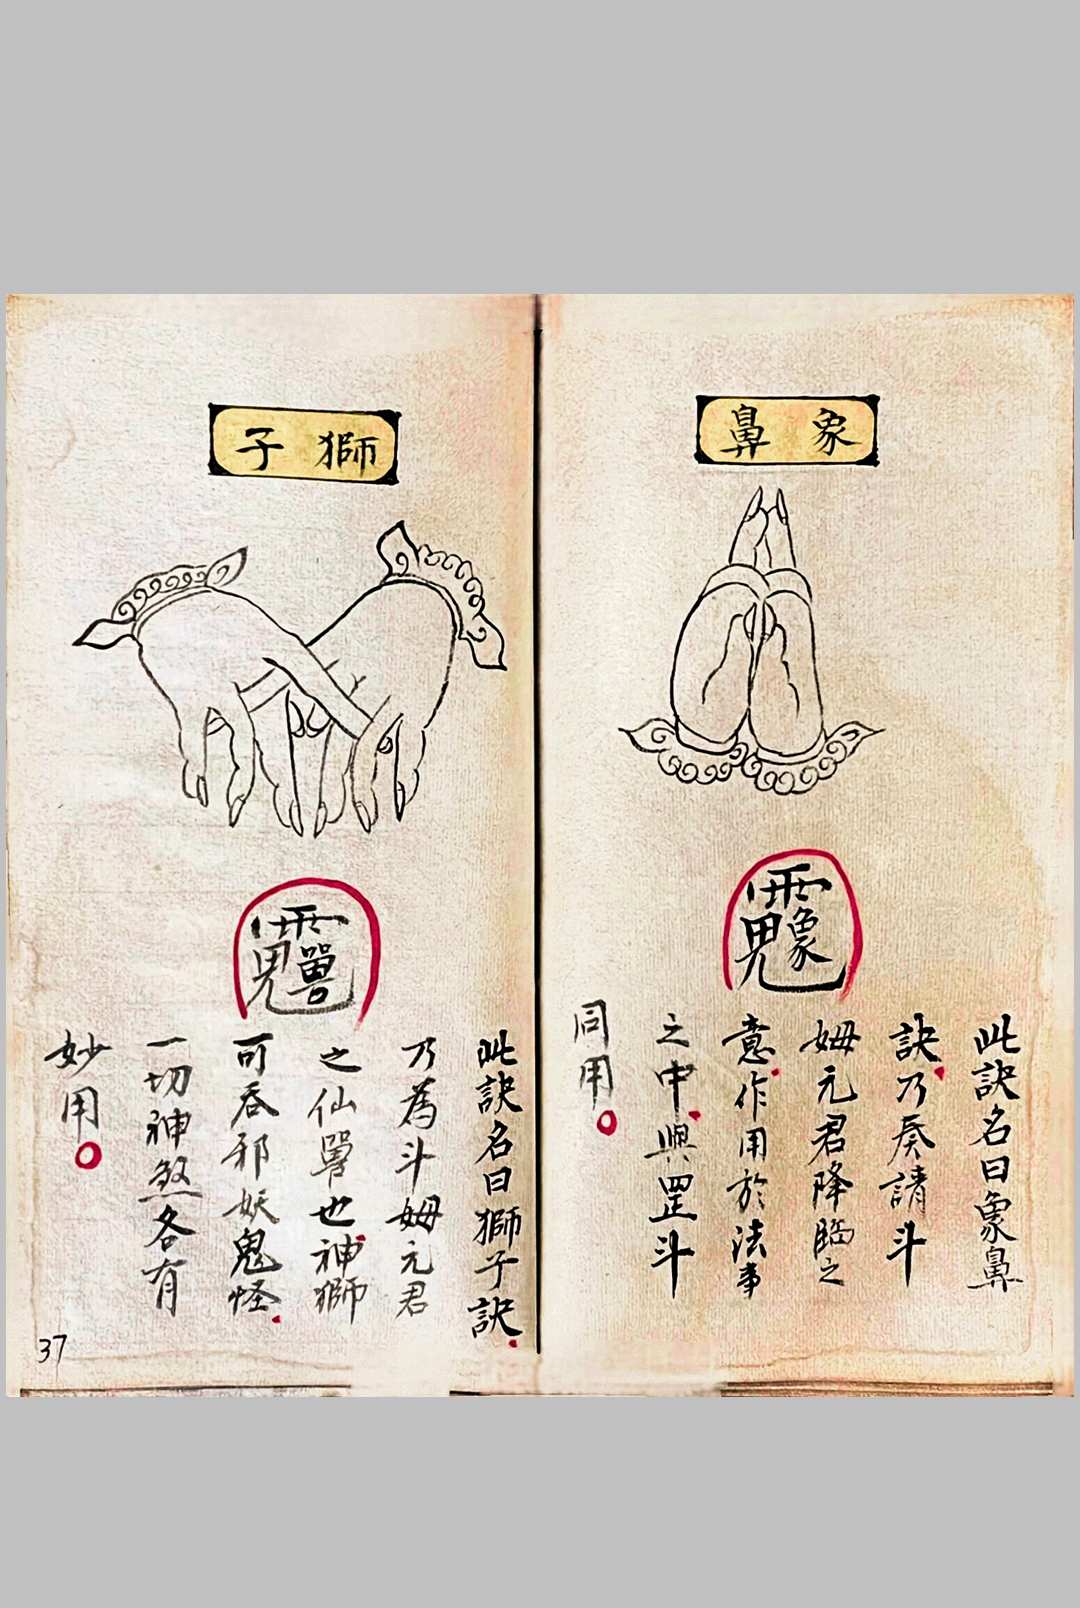 象鼻
此訣名曰象鼻
訣乃奏請斗
姆元君降臨之
意作用於法事
之中與罡斗
同用
獅子
此訣名曰獅子訣
乃為斗姆元君
之仙嘼也神獅
可吞邪妖鬼怪
一切神煞各有
妙用
37